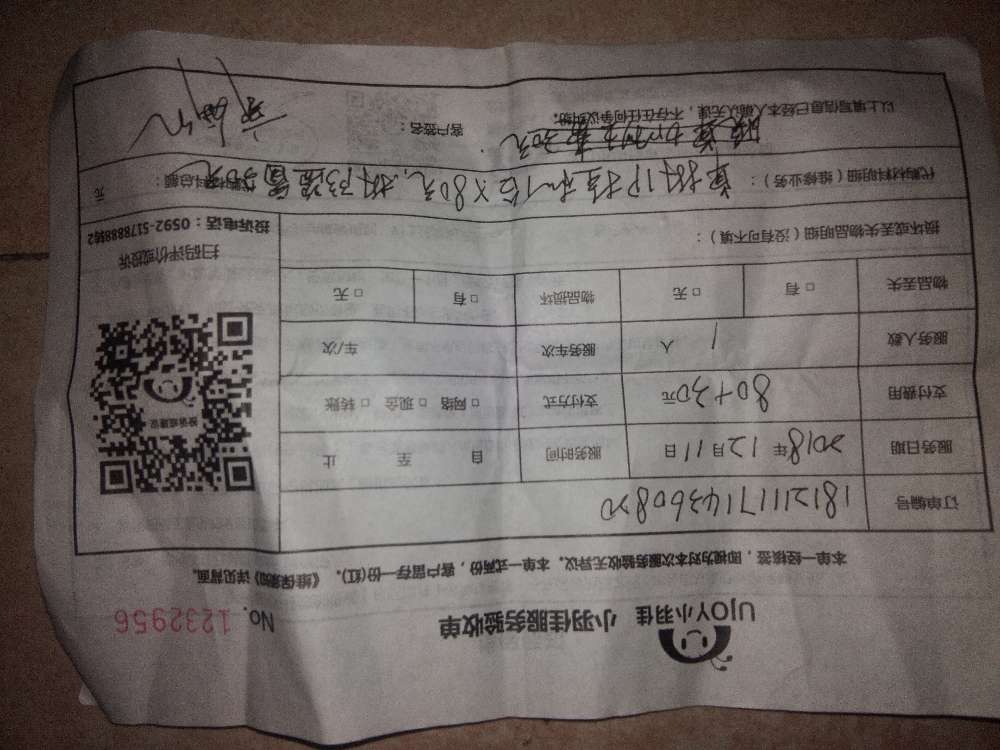 UJOY小羽佳 小羽佳服务验收单 No. 1232956
本单一经核签，即视为对本次服务验收无异议。本单一式两份，客户留存一份(红)。《维保须知》详见背面。
订单编号 181211171436082
服务日期 2018年12月11日 服务时间 自 至 止
支付费用 80+30元 支付方式 □网络 □现金 □转账
服务人数 1 人 服务车次 车/次
物品丢失 □有 □无 物品损坏 □有 □无
投诉或建议
扫码评价或投诉
投诉电话：0592-5178888
损坏或丢失物品明细（没有可不填）：
代购材料明细（维修业务）： 单拆1P挂机1台×80元， 材料总额： 元
30元
以上填写信息已经本人确认无误，不存在任何争议纠纷。 客户签名：